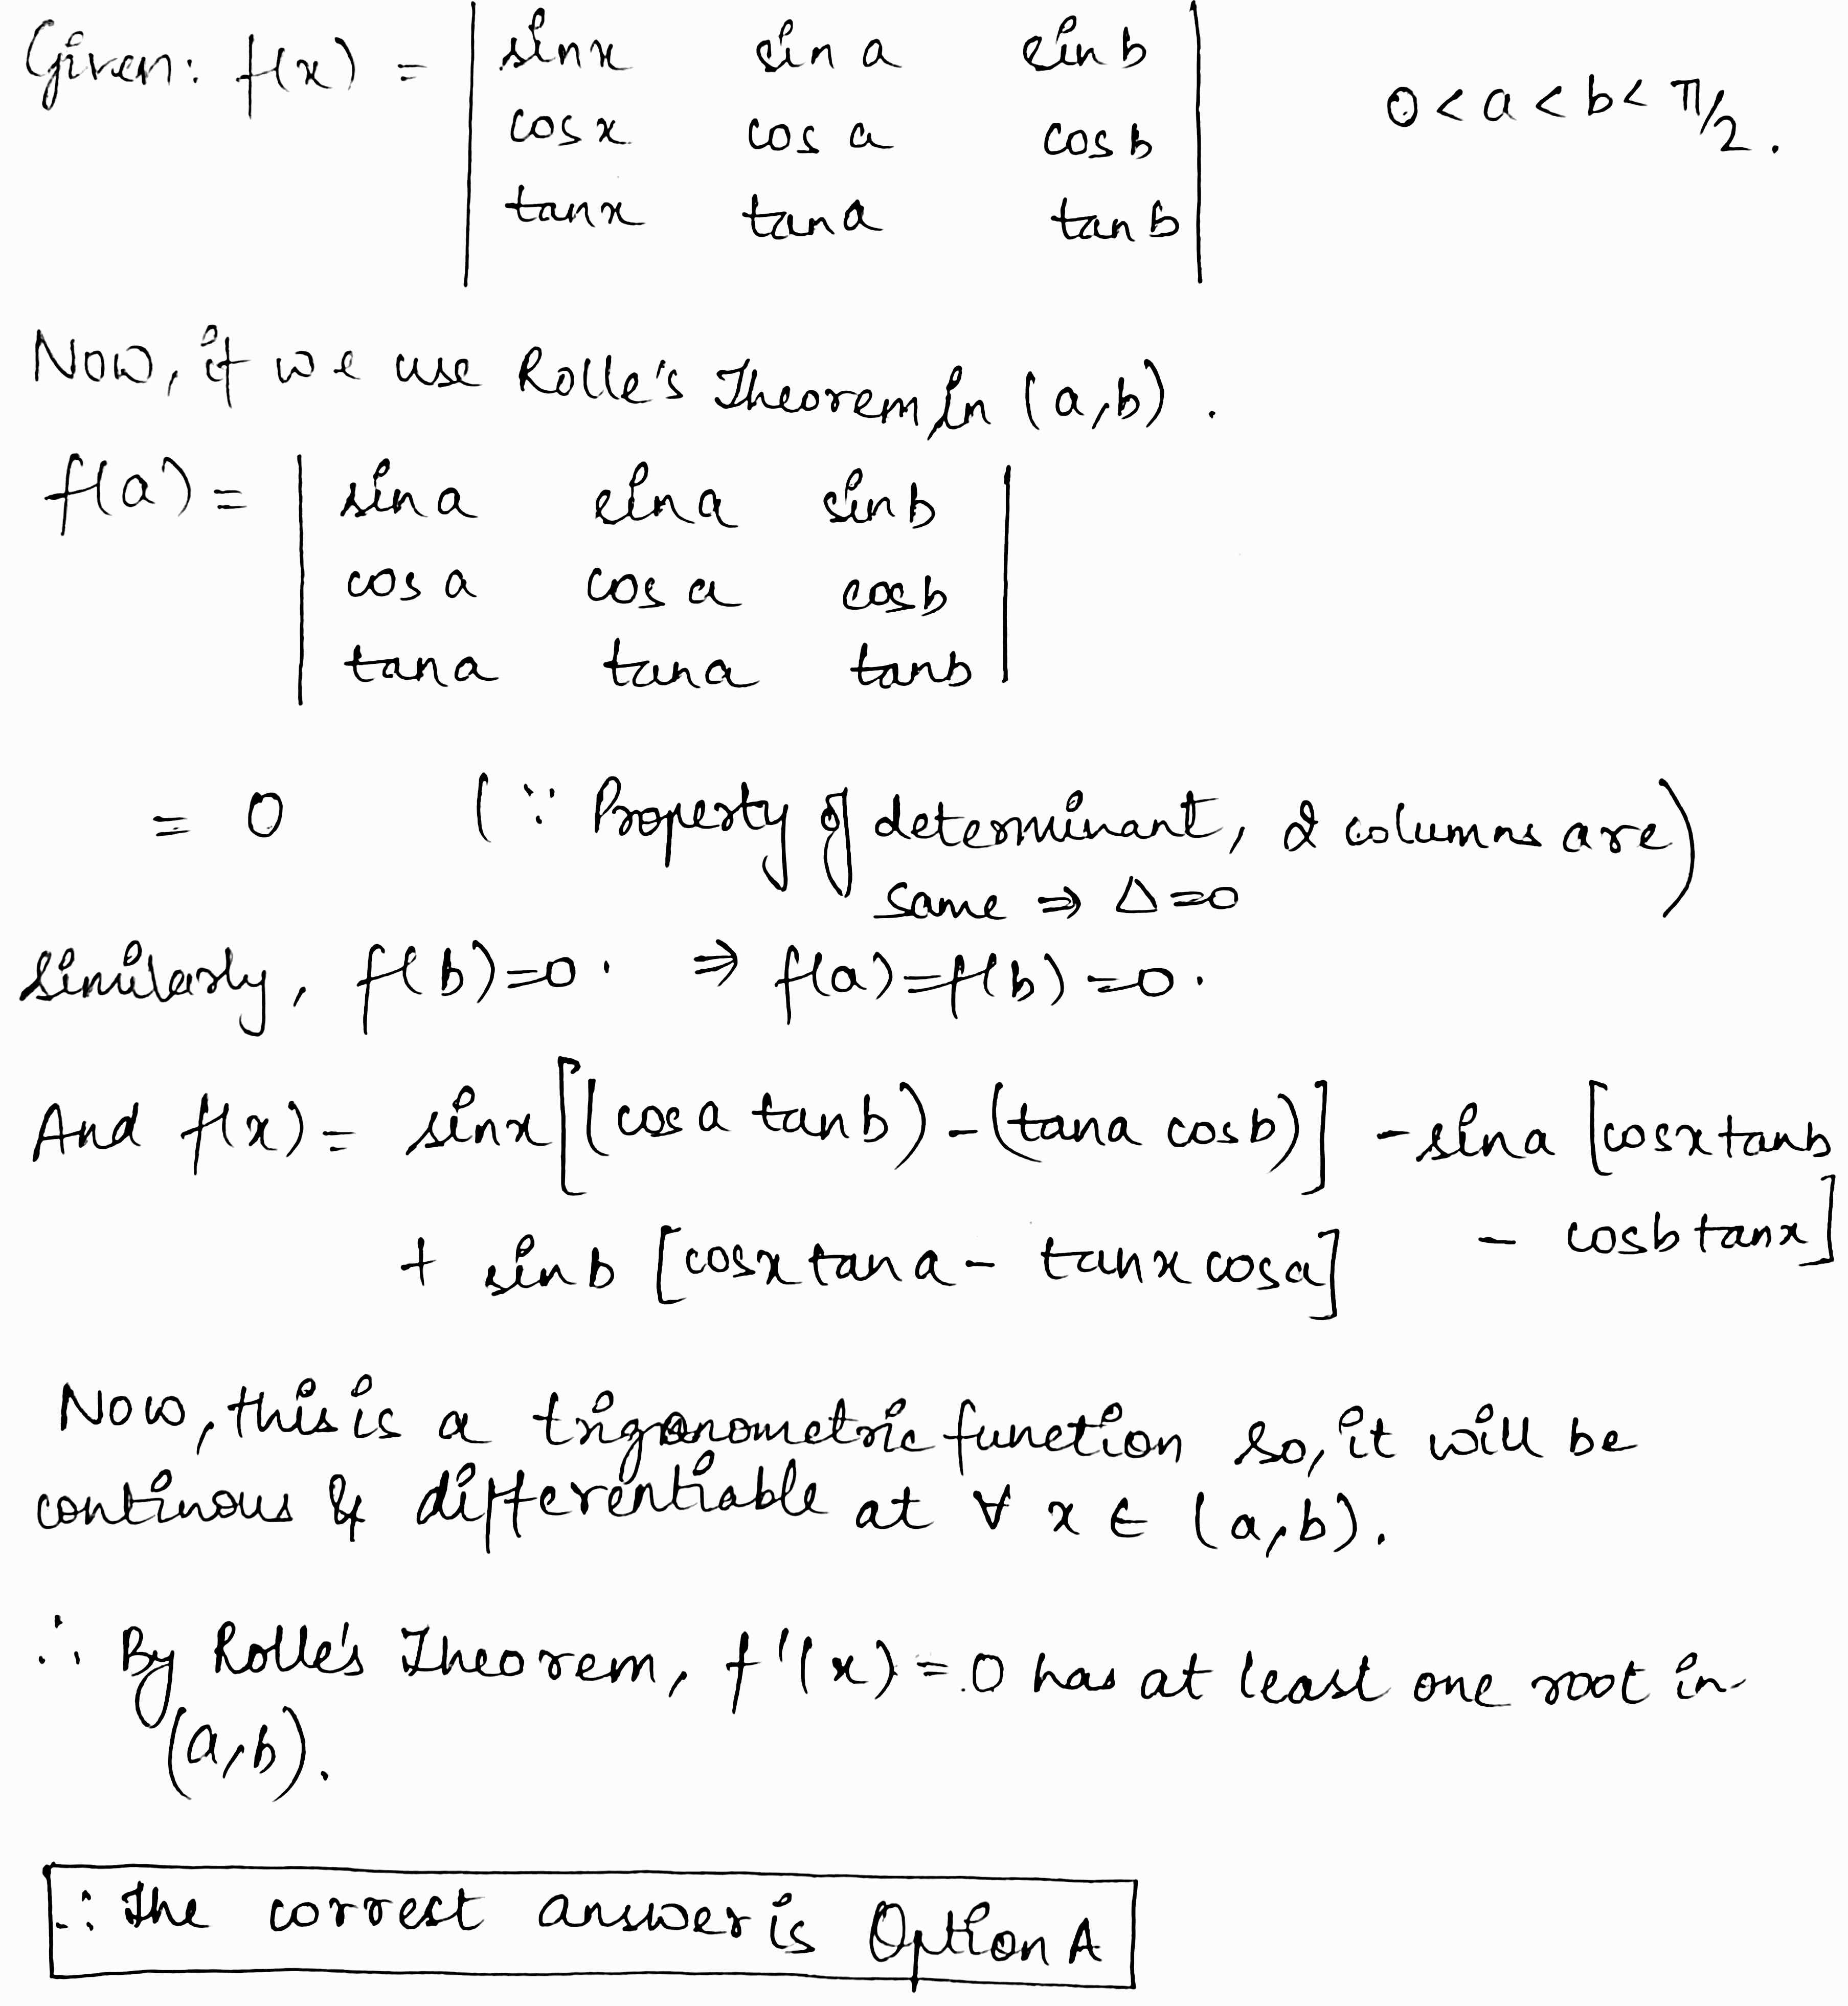 Given: f(x) = | sinx sin a sin b | 0 < a < b < π/2.
| cosx cos a cos b |
| tanx tana tanb |
Now, if we use Rolle's Theorem in (a,b).
f(a) = | sin a sin a sinb |
| cos a cos a cosb |
| tana tana tanb |
= 0 (∵ Property of determinant, 2 columns are)
same ⇒ Δ=0
Similarly, f(b)=0. ⇒ f(a)=f(b)=0.
And f(x) = sinx[(cos a tanb) - (tana cosb)] - sina [cosx tanb
+ sin b [cosx tan a - tanx cosa] - cosb tanx]
Now, this is a trigonometric function so, it will be
continous & differentiable at ∀ x ∈ (a,b).
∴ By Rolle's Theorem, f'(x) = 0 has at least one root in
(a,b).
∴ The correct answer is Option A